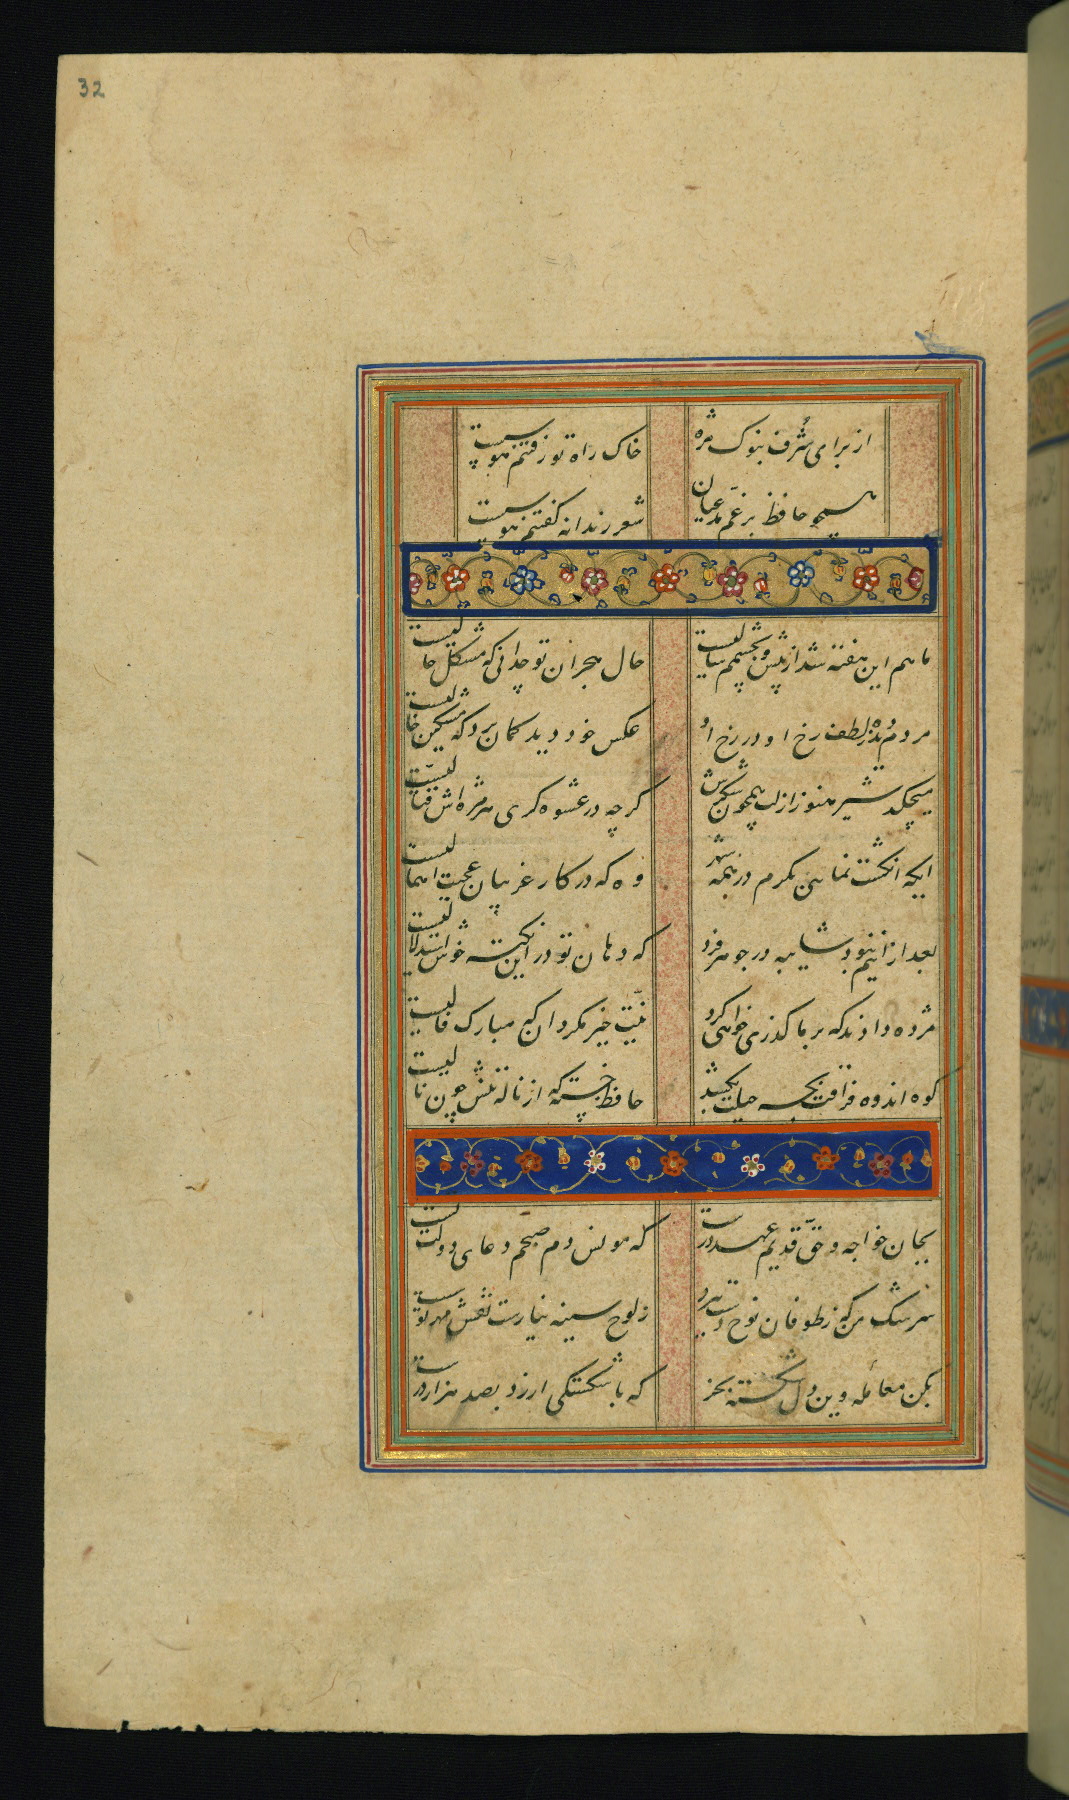 32
از برای شرف بنوک مژه
خاک راه تو رفتنم هوسیست
همچو حافظ برغم مدعیان
شعر رندانه گفتنم هوسیست
ماهم این هفته شد از پیش و بچشمم سالیست
حال هجران تو چه دانی که مشکل حالیست
مردم دیده ز لطف رخ او در رخ او
عکس خود دید گمان برد که مشکین خالیست
میچکد شیر هنوز از لب همچون شکرش
گرچه در عشوه گری هر مژه اش قتالیست
ایکه انگشت نمائی بکرم در همه شهر
وه که در کار غریبان عجبت اهمالیست
بعد ازانیم نبود شایبه در جوهر فرد
که دهان تو در این نکته خوش استدلالیست
مژده دادند که بر ما گذری خواهی کرد
نیت خیر مگردان که مبارک فالیست
کوه اندوه فراقت بچه حیلت بکشد
حافظ خسته که از ناله تنش چون نالیست
بجان خواجه و حق قدیم عهد درست
که مونس دم صبحم دعای دولت تست
سرشک من که ز طوفان نوح دست ببرد
ز لوح سینه نیارست نقش مهر تو شست
بکن معامله وین دل شکسته بخر
که با شکستگی ارزد بصد هزار درست